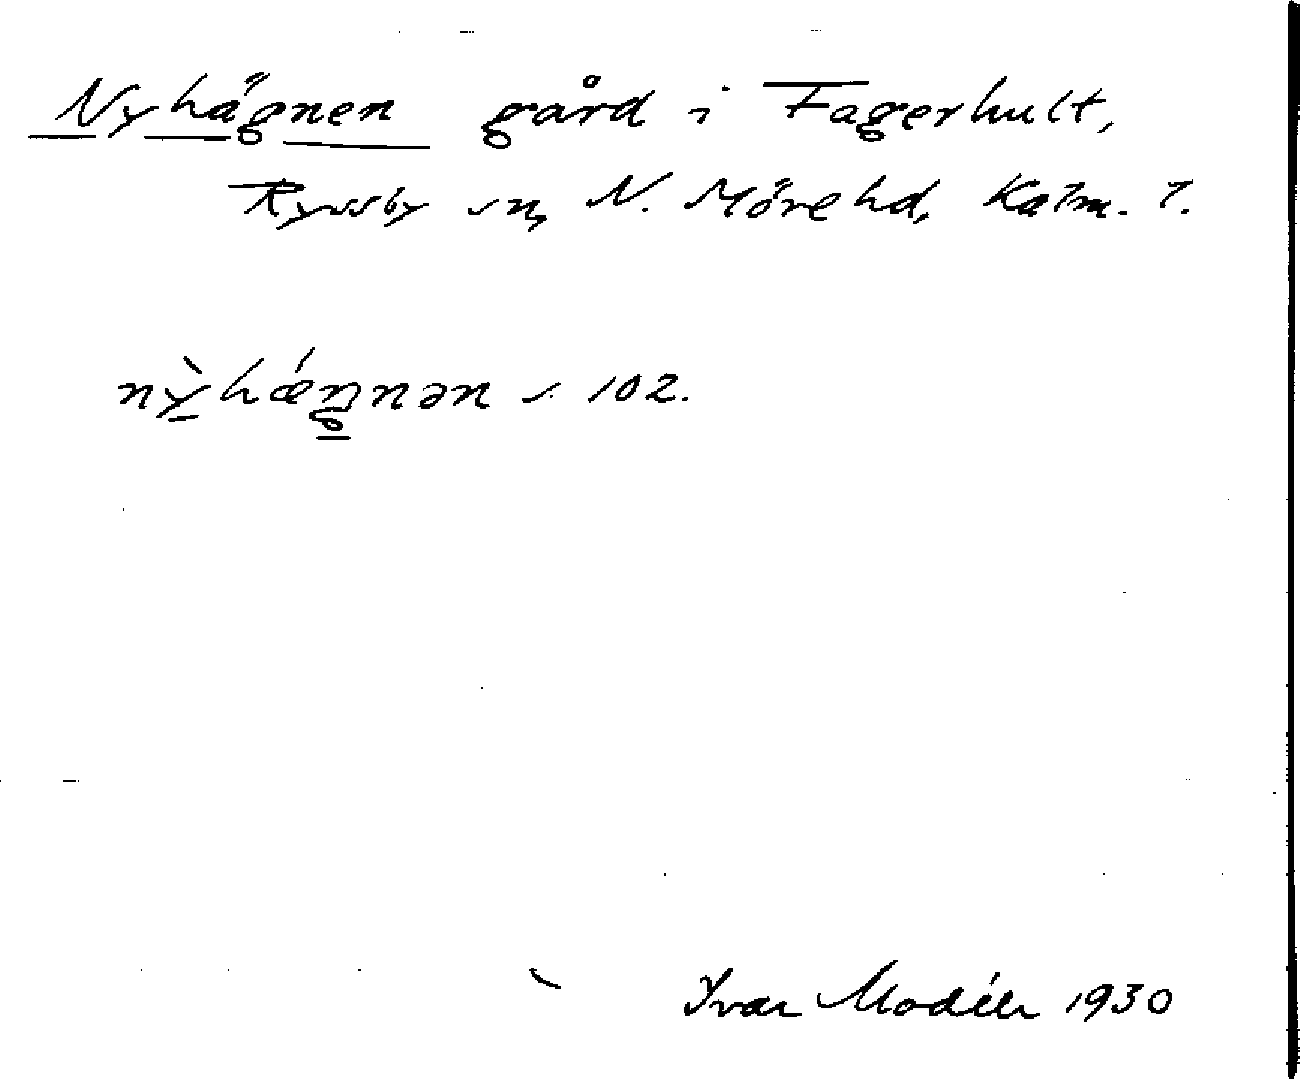 Nyhägnen gård i Fagerhult,
Ryssby sn, N. Möre hd, Kalm. l.
nỳhǽŋnən s. 102.
Ivar Modéer 1930